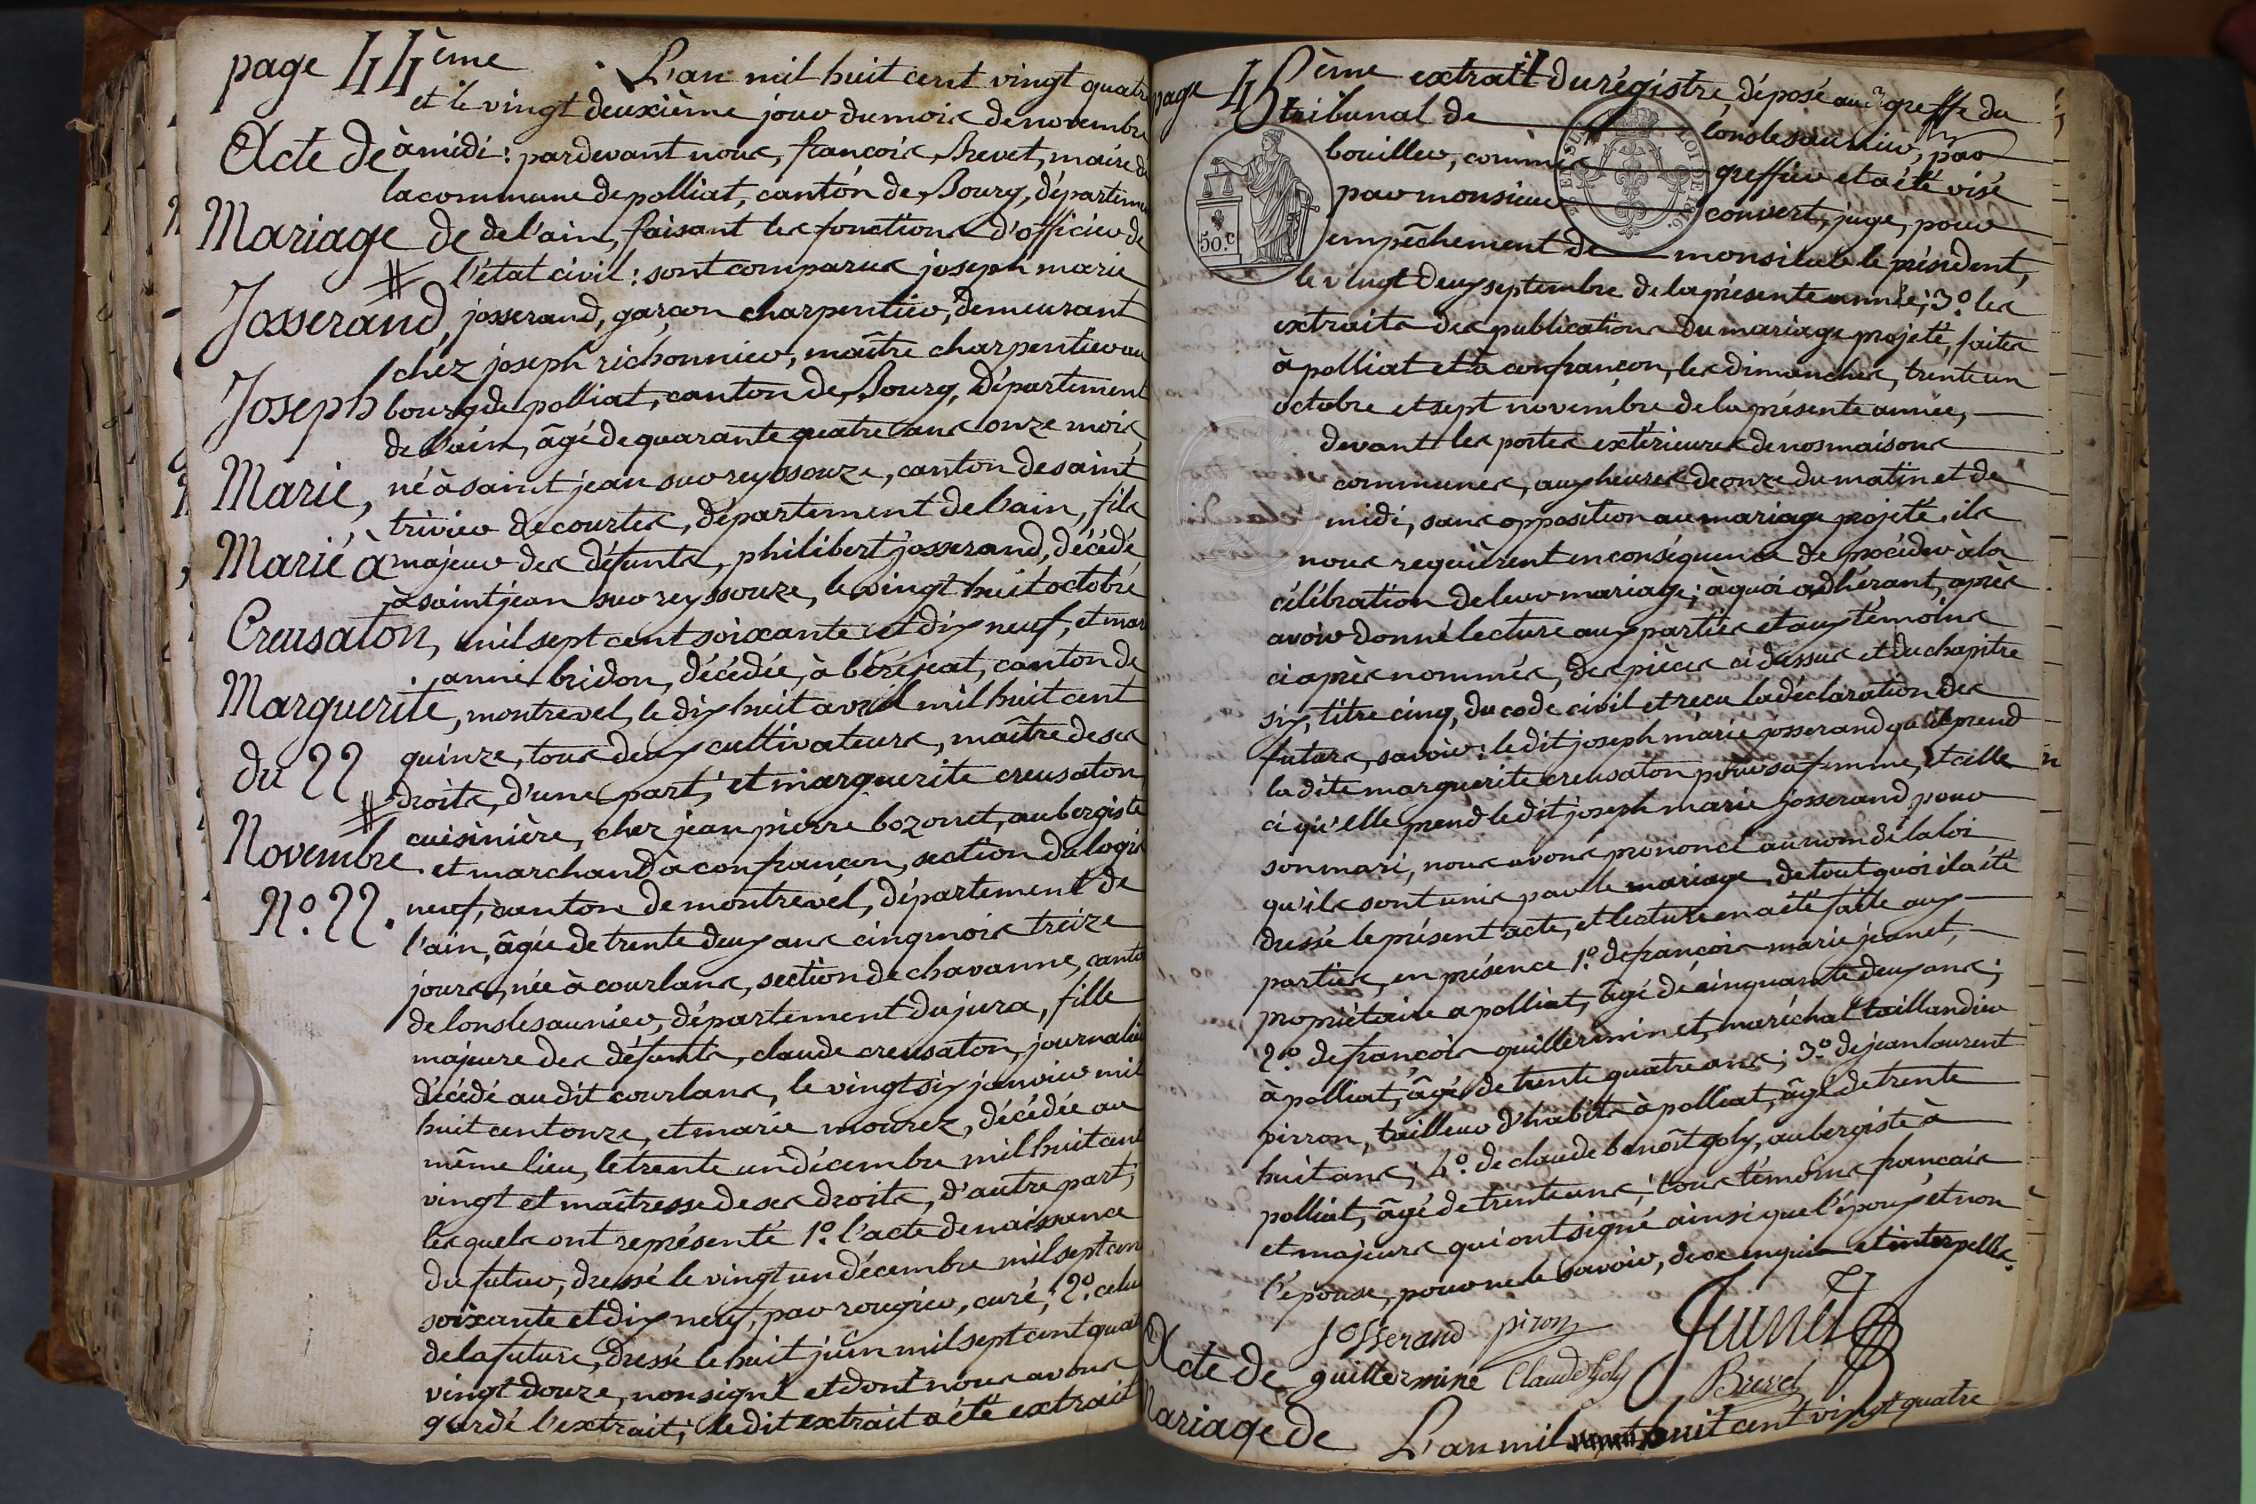 page 44ème
L'an mil huit cent vingt quatre
et le vingt deuxième jour du mois de novembre
Acte de
Mariage de
Josserand,
Joseph
Marie,
Marié à
Creusaton,
Marguerite,
du 22
Novembre
N.º 22.
à midi : pardevant nous, françois Brevet, maire de
la commune de polliat, canton de Bourg, départeme
de l'ain, faisant les fonctions d'officier de
l'état civil : sont comparus joseph marie
josserand, garçon charpentier, demeurant
chez joseph richonnier, maître charpentier au
bourg de polliat, canton de Bourg, département
de l'ain, âgé de quarante quatre ans onze mois,
né à saint jean sur reyssouze, canton de saint
trivier de courtes, département de l'ain, fils
majeur des défunts, philibert josserand, décédé
à saint jean sur reyssouze, le vingt huit octobre
mil sept cent soixante et dix neuf, et mar
anne bridon, décédée, à béréjeat, canton de
montrevel, le dix huit avril mil huit cent
quinze, tous deux cultivateurs, maître de ses
droits, d'une part ; et marguerite creusaton
cuisinière, chez jean pierre bozonet, aubergiste
et marchand à confrançon, section du logis
neuf, canton de montrevel, département de
l'ain, âgée de trente deux ans cinq mois treize
jours, née à courlans, section de chavanne, canto
de lons le saunier, département du jura, fille
majeure des défunts, claude creusaton, journalier
décédé au dit courlans, le vingt six janvier mil
huit cent onze, et marie mourez, décédée au
même lieu, le trente un décembre mil huit cent
vingt et maîtresse de ses droits, d'autre part,
les quels ont représenté 1.º l'acte de naissance
du futur, dressé le vingt un décembre mil sept cen
soixante et dix neuf, par rougier, curé ; 2.º celui
de la future, dressé le huit juin mil sept cent quat
vingt douze, non signé et dont nous avons
gardé l'extrait ; le dit extrait a été extrait
page 45ème extrait du régistre, déposé au greffe du
tribunal de lons le saunier, par
bouiller, commis greffier et a été visé
par monsieur convert, juge, pour
empêchement de monsieur le président,
50.c
le vingt deux septembre de la présente année ; 3.º les
extraits des publications du mariage projeté, faites
à polliat et à confrançon, les dimanches, trente un
octobre et sept novembre de la présente année,
devant les portes extérieures de nos maisons
communes, aux heures de onze du matin et de
midi, sans opposition au mariage projeté, ils
nous requièrent en conséquence de procéder à la
célébration de leur mariage ; à quoi adhérant, après
avoir donné lecture aux parties et aux témoins
ci après nommés, des pièces ci dessus et du chapitre
six, titre cinq, du code civil et reçu la déclaration des
futurs, savoir : le dit joseph marie josserand qu'il prend
la dite marguerite creusaton pour sa femme, et celle
ci qu'elle prend le dit joseph marie josserand pour
son mari, nous avons prononcé au nom de la loi
qu'ils sont unis par le mariage, de tout quoi il a été
dressé le présent acte, et lecture en a été faite aux
parties, en présence 1.º de françois marie jeanet,
propriétaire a polliat, âgé de cinquante deux ans ;
2.º de françois guillerminet, maréchal taillandier
à polliat, âgé de trente quatre ans ; 3.º de jean laurent
pirron, tailleur d'habits à polliat, âgé de trente
huit ans ; 4.º de claude benoît goly, aubergiste à
polliat, âgé de trente ans ; tous témoins français
et majeurs qui ont signé ainsi que l'époux et non
l'épouse, pour ne le savoir, de ce enquis et interpellés.
Josserand piron Jeunet
guillermine Claude Goly Brevet
Acte de
Mariage de
L'an mil huit cent vingt quatre